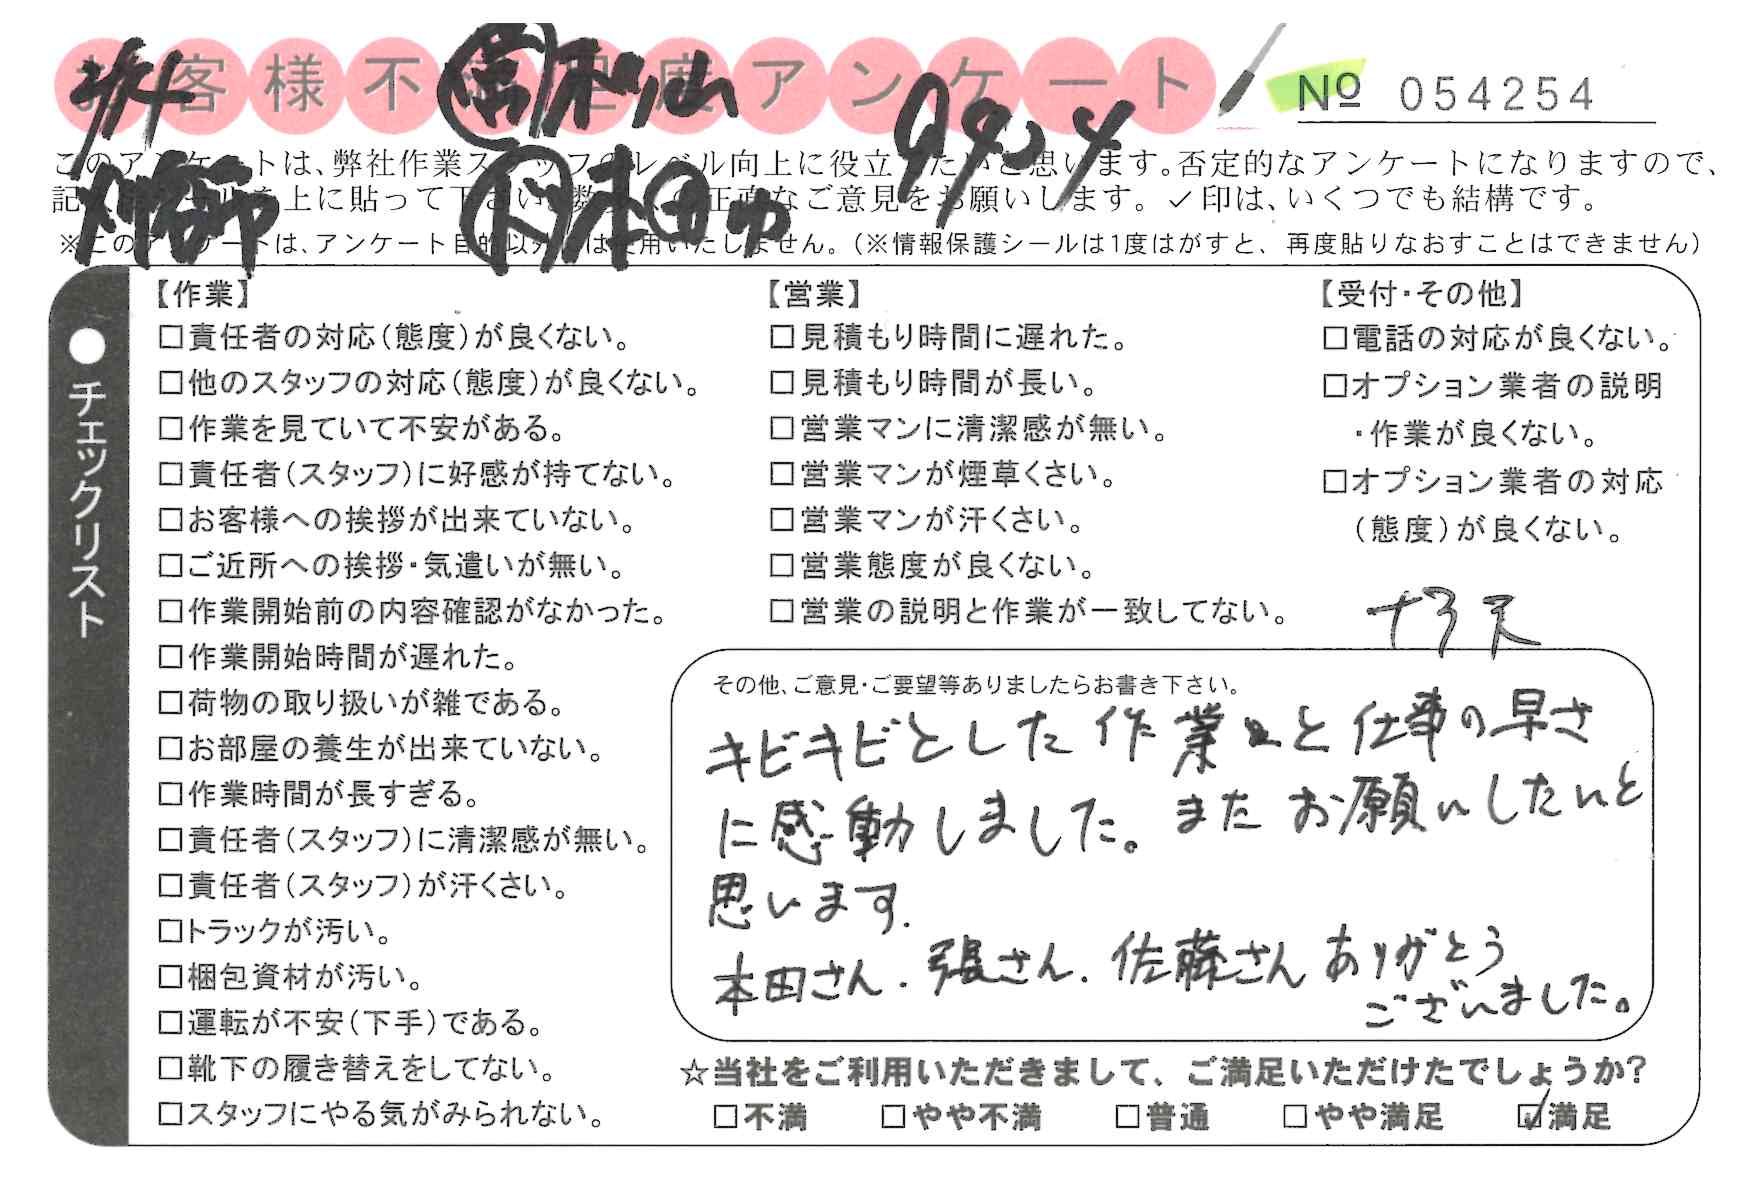 お客様不満足度アンケート
№ 054254
このアンケートは、弊社作業スタッフのレベル向上に役立てたいと思います。否定的なアンケートになりますので、
記 上に貼って下さい 数 の正直なご意見をお願いします。✓印は、いくつでも結構です。
※このアンケートは、アンケート目的以外には使用いたしません。(※情報保護シールは1度はがすと、再度貼りなおすことはできません)
本田
●チェックリスト
【作業】
□責任者の対応(態度)が良くない。
□他のスタッフの対応(態度)が良くない。
□作業を見ていて不安がある。
□責任者(スタッフ)に好感が持てない。
□お客様への挨拶が出来ていない。
□ご近所への挨拶・気遣いが無い。
□作業開始前の内容確認がなかった。
□作業開始時間が遅れた。
□荷物の取り扱いが雑である。
□お部屋の養生が出来ていない。
□作業時間が長すぎる。
□責任者(スタッフ)に清潔感が無い。
□責任者(スタッフ)が汗くさい。
□トラックが汚い。
□梱包資材が汚い。
□運転が不安(下手)である。
□靴下の履き替えをしてない。
□スタッフにやる気がみられない。
【営業】
□見積もり時間に遅れた。
□見積もり時間が長い。
□営業マンに清潔感が無い。
□営業マンが煙草くさい。
□営業マンが汗くさい。
□営業態度が良くない。
□営業の説明と作業が一致してない。
【受付・その他】
□電話の対応が良くない。
□オプション業者の説明
・作業が良くない。
□オプション業者の対応
(態度)が良くない。
その他、ご意見・ご要望等ありましたらお書き下さい。
キビキビとした作業と仕事の早さ
に感動しました。またお願いしたいと
思います.
本田さん.張さん.佐藤さんありがとう
ございました。
☆当社をご利用いただきまして、ご満足いただけたでしょうか?
□不満 □やや不満 □普通 □やや満足 ☑満足